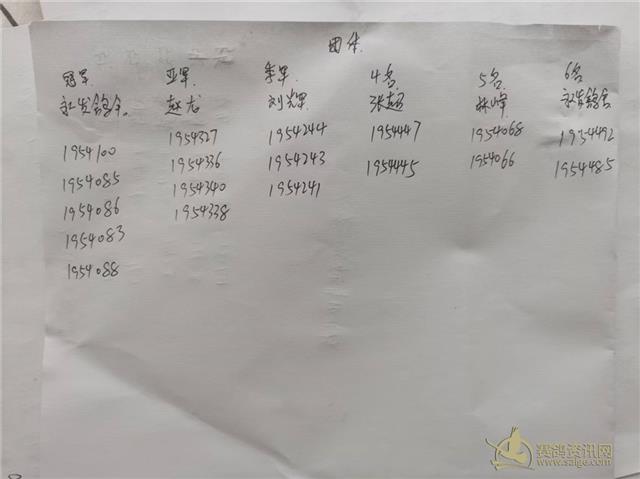 团体
冠军 亚军 季军 4名 5名 6名
永发鸽舍 赵龙 刘光军 张超 林峰 永发鸽舍
1954327 1954244 1954447 1954068 1954492
1954100 1954336 1954243 1954445 1954066 1954485
1954085 1954340 1954241
1954086 1954338
1954083
1954088
赛鸽资讯网
www.saige.com